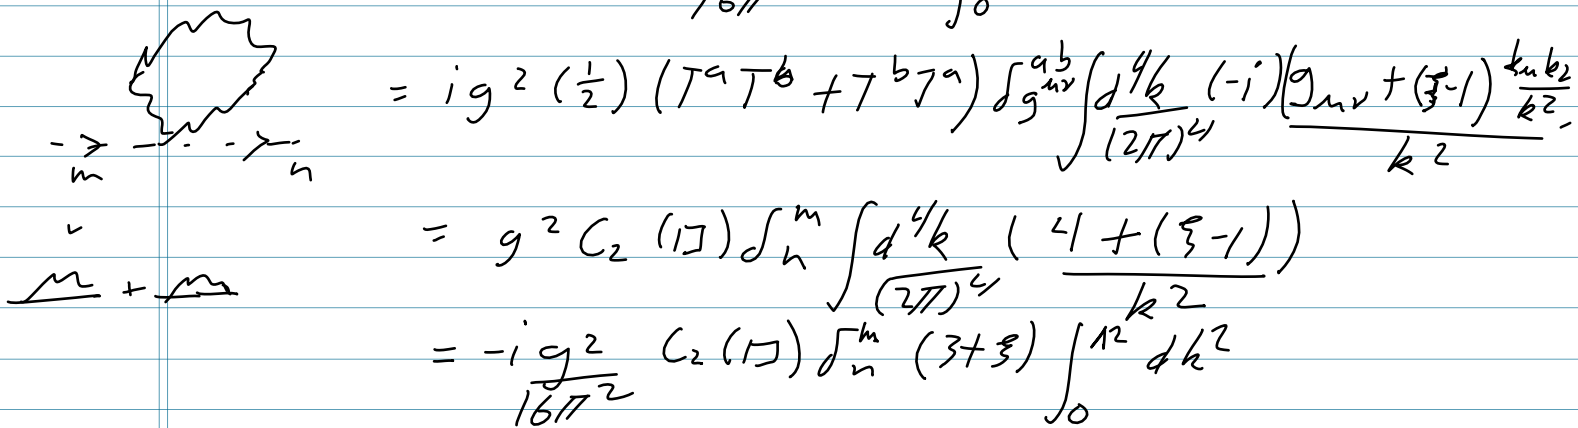 16π ∫0
= i g² (1/2) (Tᵃ Tᵇ + Tᵇ Tᵃ) δᵃᵇ g^μν ∫ d⁴k/(2π)⁴ (-i) (g_μν + (ξ-1) k_μ k_ν/k²)/k²
m n
= g² C₂ (□) δ^m_n ∫ d⁴k/(2π)⁴ (4 + (ξ-1))/k²
+
= -i g²/16π² C₂ (□) δ^m_n (3+ξ) ∫₀^Λ² dk²